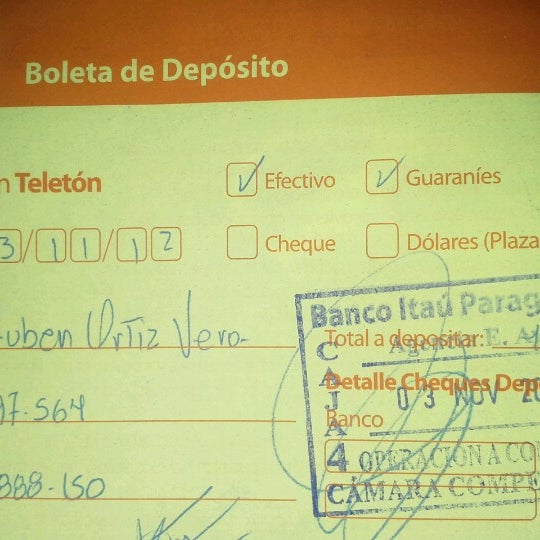 Boleta de Depósito
n Teletón
Efectivo
Guaraníes
3/11/12
Cheque
Dólares (Plaza
uben Ortiz Vera
Banco Itaú Parag
Total a depositar:
Detalle Cheques Dep
03 NOV 20
97.564
Banco
CAJA 4
OPERACION A CO
888-150
CÁMARA COMPE